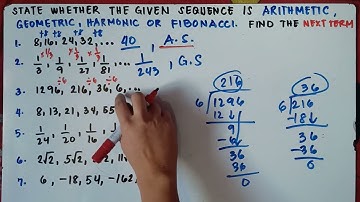 STATE WHETHER THE GIVEN SEQUENCE IS ARITHMETIC,
GEOMETRIC, HARMONIC OR FIBONACCI. FIND THE NEXT TERM
+8 +8 +8
1. 8, 16, 24, 32, ... 40, A.S.
2. 1/3, 1/9, 1/27, 1/81, ... 1/243, G.S
÷6 ÷6 ÷6
3. 1296, 216, 36, 6, ...
4. 8, 13, 21, 34, 55
5. 1/24, 1/20, 1/16,
6. 2√2, 5√2, 11
7. 6, -18, 54, -162,
216
6 1296
12↓
9
-6↓
36
36
0
36
6 216
-18↓
36
-36
0